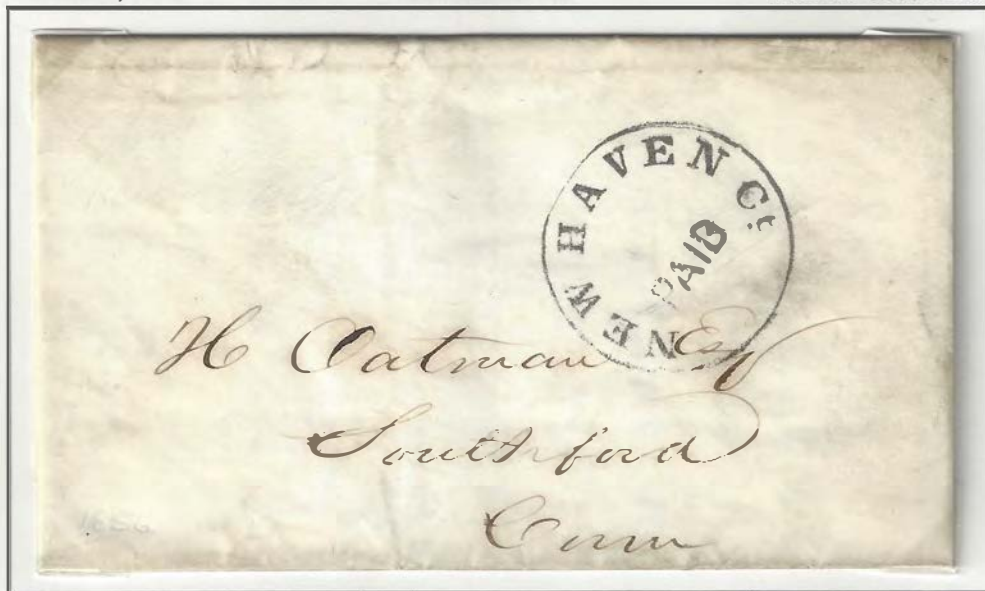 NEW HAVEN Ct.
PAID
H Oatman Esq
Southford
Conn
1856